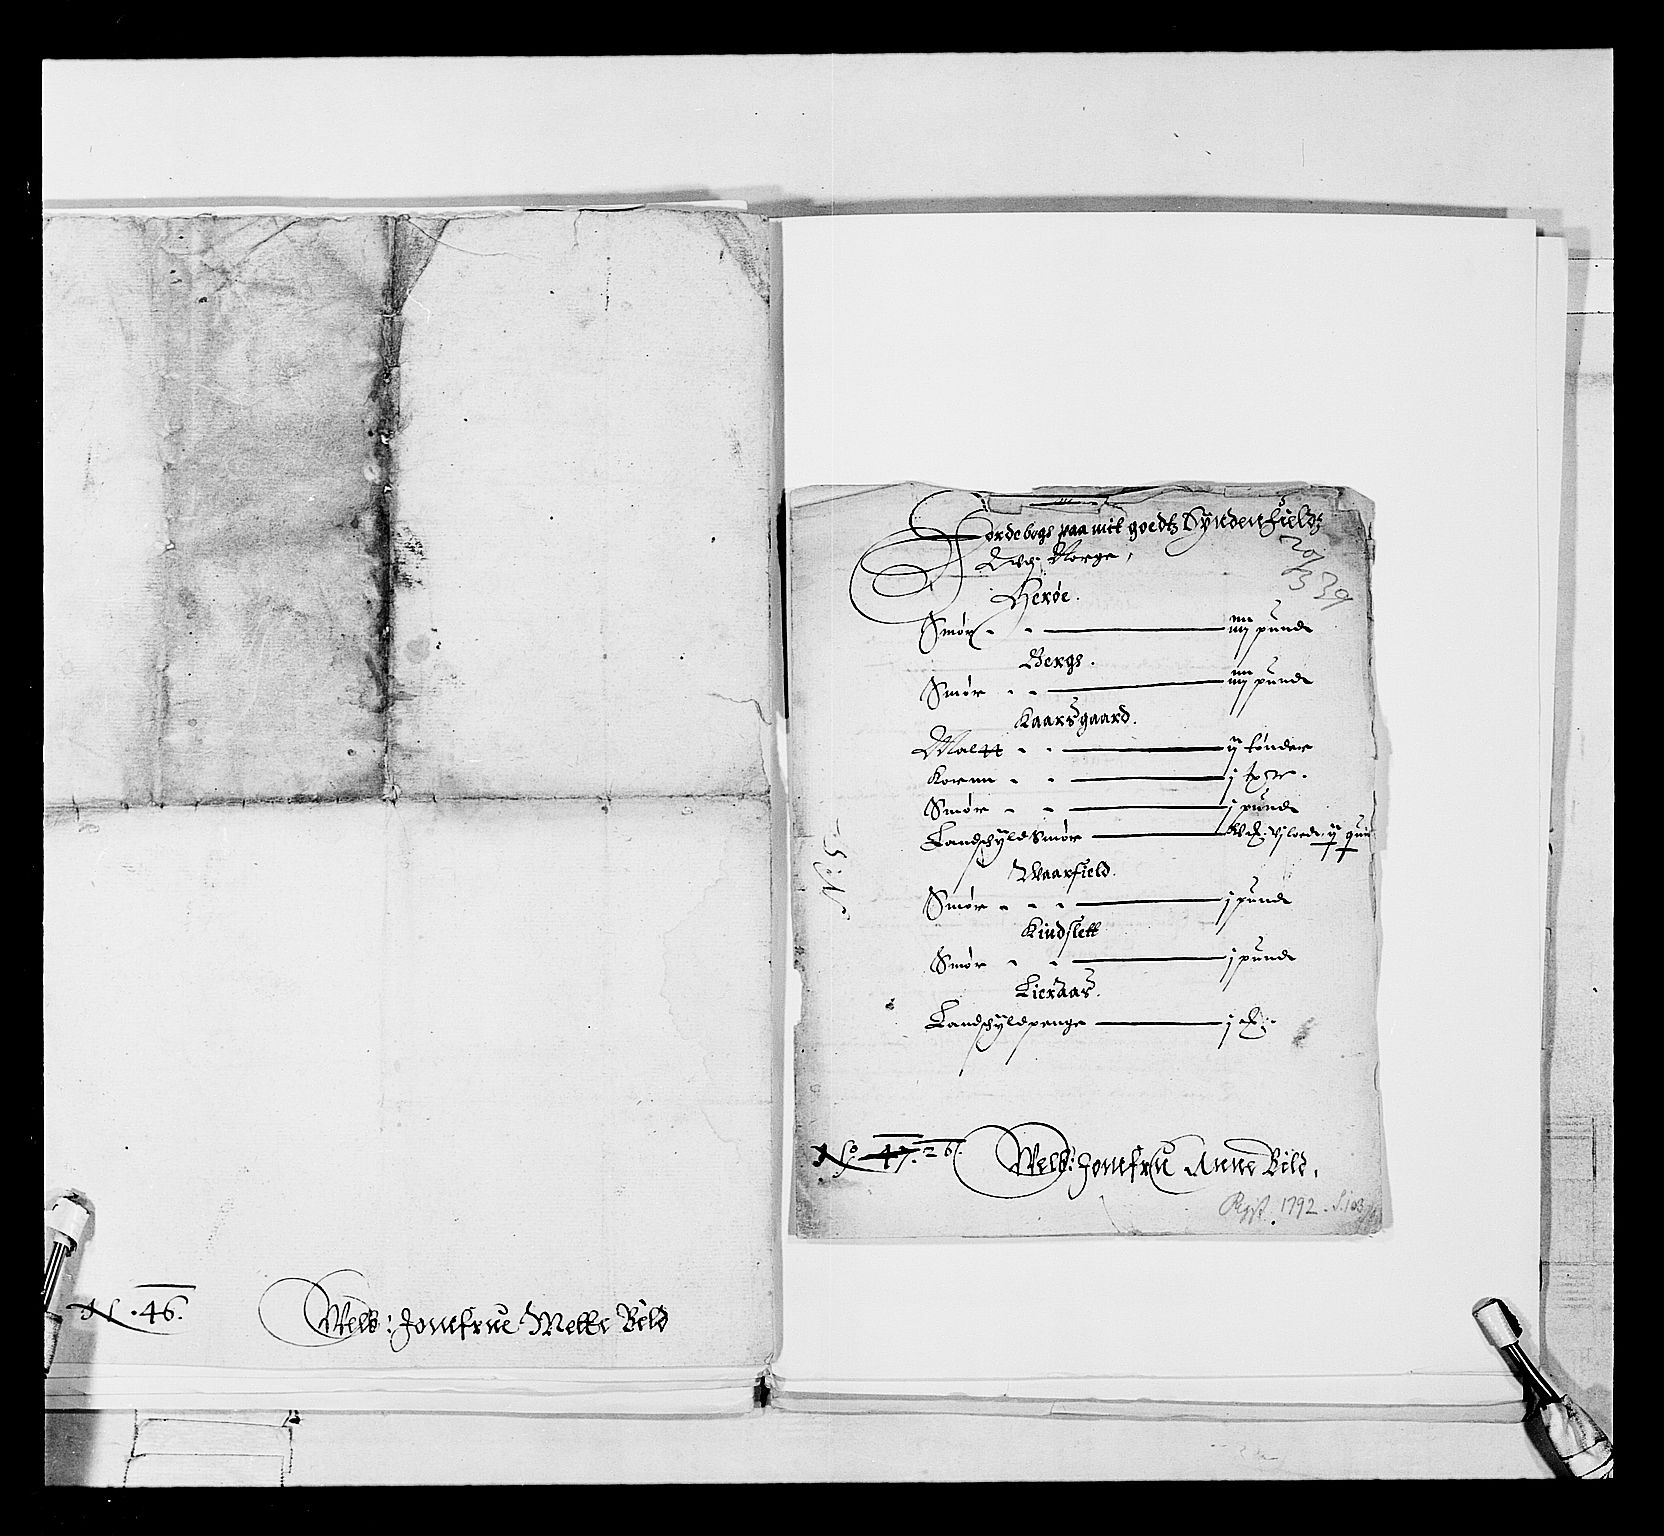 N . 46.
Welb: Jomfrue Mette Bild
Jordebogs paa mit goedtz Syndenfieldtz
Norge,
Herøe.
Smør - - iiij punde
Bergs.
Smør - - iiij punde
Kaarsgaard.
Maltt - - ij tønder
Kornn - - j
Smør - - j punde
Landschyld Smør
Waarfield.
Smør - - - j punde
Kindslett
Smør - - j punde
Lieraas.
Landschyldpenge j
No 47. 26.
Welb: Jomfru Anne Bild,
Regist. 1792. S. 103